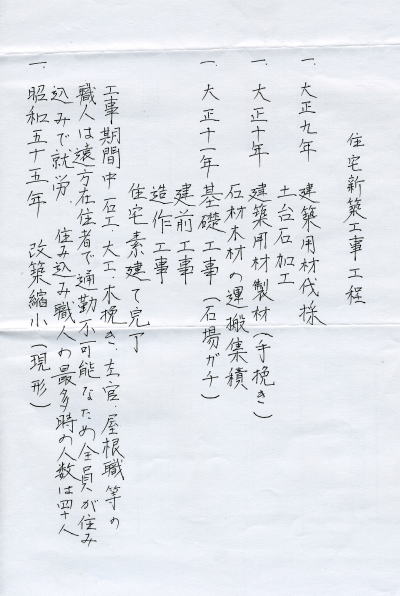 住宅新築工事工程
一、大正九年 建築用材伐採
土台石加工
一、大正十年 建築用材製材(手挽き)
石材木材の運搬集積
一、大正十一年 基礎工事(石場ガチ)
建前工事
造作工事
住宅素建て完了
工事期間中石工、大工、木挽き、左官、屋根職等の
職人は遠方在住者で通勤不可能なため全員が住み
込みで就労 住み込み職人の最多時の人数は四十人
一、昭和五十五年 改築縮小(現形)